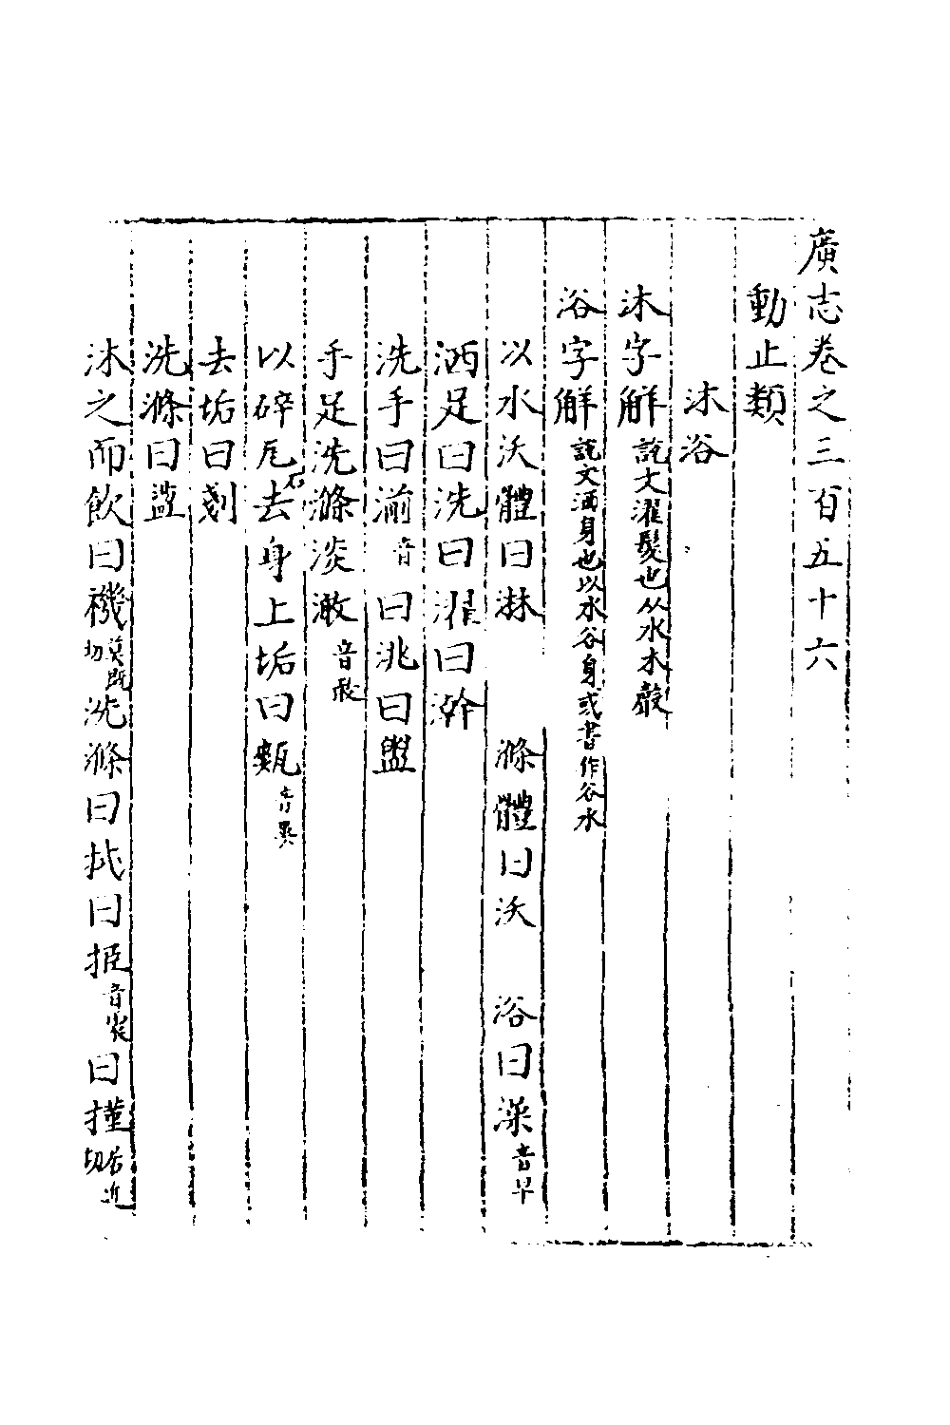 廣志卷之三百五十六
動止類
沐浴
沐字解說文濯髮也从水木聲
浴字解說文洒身也以水谷身或書作谷水
以水沃體曰淋 滌體曰沃 浴曰澡音早
洒足曰洗曰濯曰澣
洗手曰湔音曰洮曰盥
手足洗滌淡漱音
以碎瓦石去身上垢曰甎音
去垢曰剗
洗滌曰盪
沐之而飲曰禨莫既切洗滌曰 曰挋音 曰墐居近切